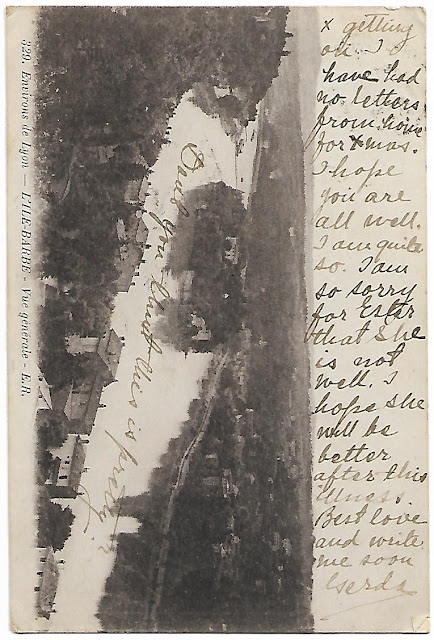 x getting
on. I
have had
no letters
from home
for xmas.
I hope
you are
all well.
I am quite
so. I am
so sorry
for Ester
that she
is not
well. I
hope she
will be
better
after this
illness.
Best love
and write
me soon
Gerda
Don't you think this is pretty?
329. Environs de Lyon — L'ILE-BARBE - Vue générale - E.R.